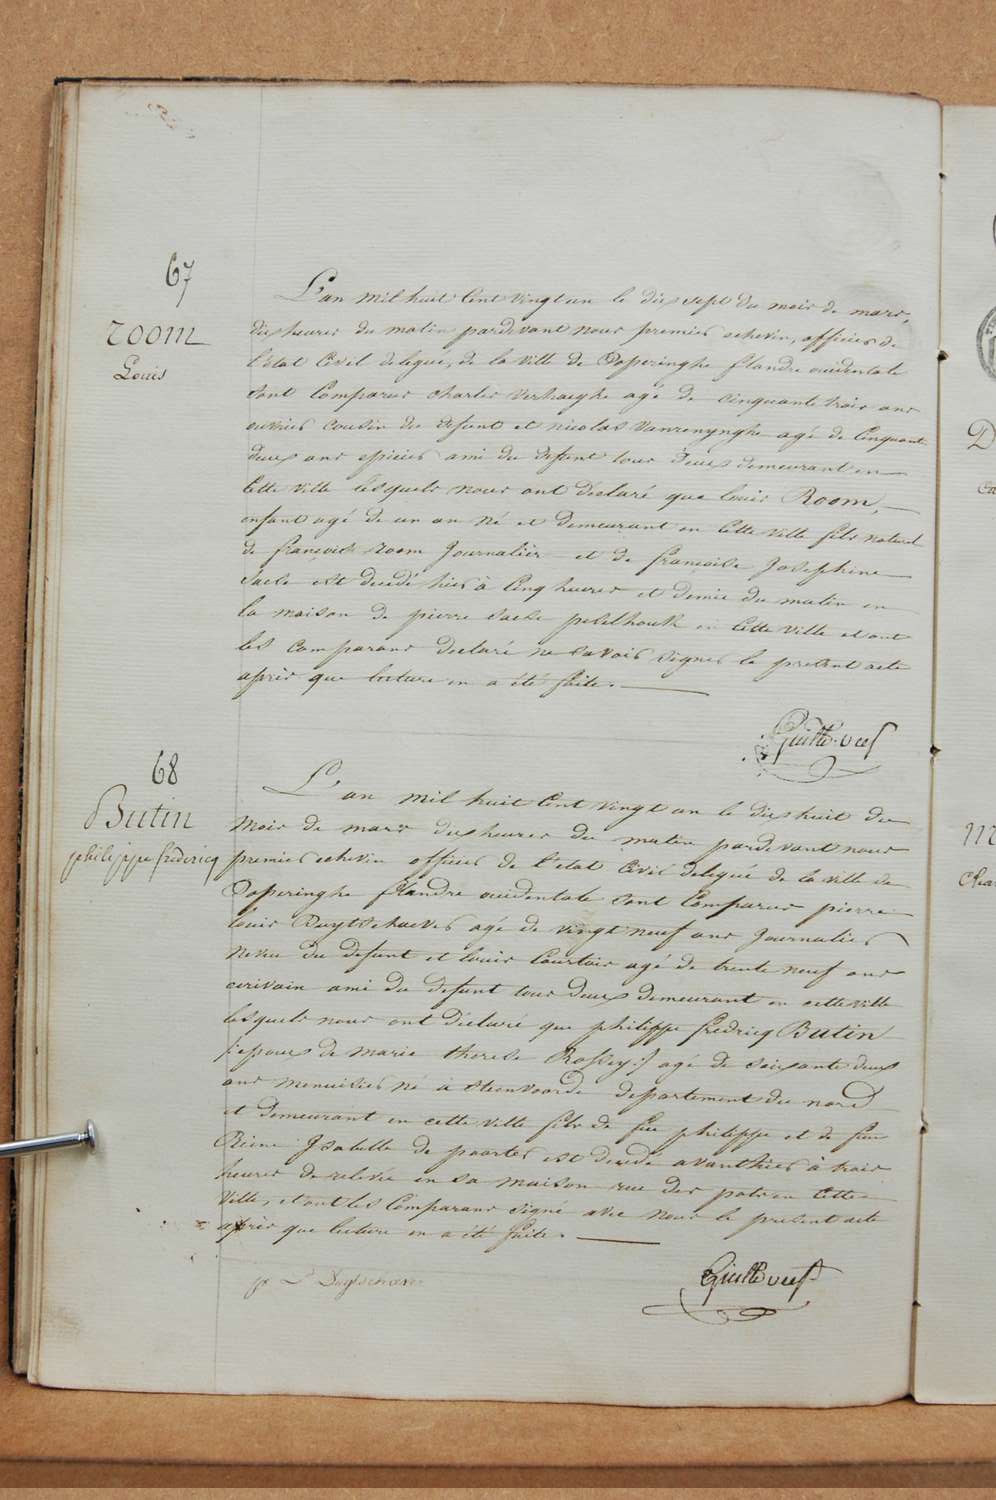 67
room
Louis
L'an mil huit Cent vingt un le dix sept du mois de mars,
dix heures du matin pardevant nous premier echevin, officier de
l'etat Civil delegué, de la ville de Poperinghe flandre occidentale
sont Comparus charles verhaeghe agé de cinquante trois ans
ouvrier cousin du defunt et nicolas vanrenynghe agé de Cinquante
deux ans epicier ami du defunt tous deux demeurant en
Cette ville lesquels nous ont declaré que louis Room,
enfant agé de un an né et demeurant en Cette ville fils naturel
de françois room Journalier et de françoise Josephine
est decedé hier à Cinq heures et demie du matin en
la maison de pierre en Cette ville et ont
les Comparans declaré ne savoir signer le present acte
après que lecture en a été faite.
68
Butin
philippe fredericq
L'an mil huit Cent vingt un le dix huit du
mois de mars dix heures du matin pardevant nous
premier echevin officier de l'etat Civil delegué de la ville de
Poperinghe flandre occidentale sont Comparus pierre
louis Duytschaever agé de vingt neuf ans Journalier
neveu du defunt et louis Courtois agé de trente neuf ans
ecrivain ami du defunt tous deux demeurant en cette ville
lesquels nous ont déclaré que philippe fredricq Butin
(:epoux de marie therese Rossey:) agé de soixante deux
ans menuisier né à Steenvoorde departement du nord
et demeurant en cette ville fils de feu philippe et de feue
Reine Isabelle de paorter est decedé avanthier à trois
heures de relevée en sa maison rue des pots en Cette
Ville, et ont les Comparans signé avec nous le present acte
après que lecture en a été faite.
p L Duytschaever